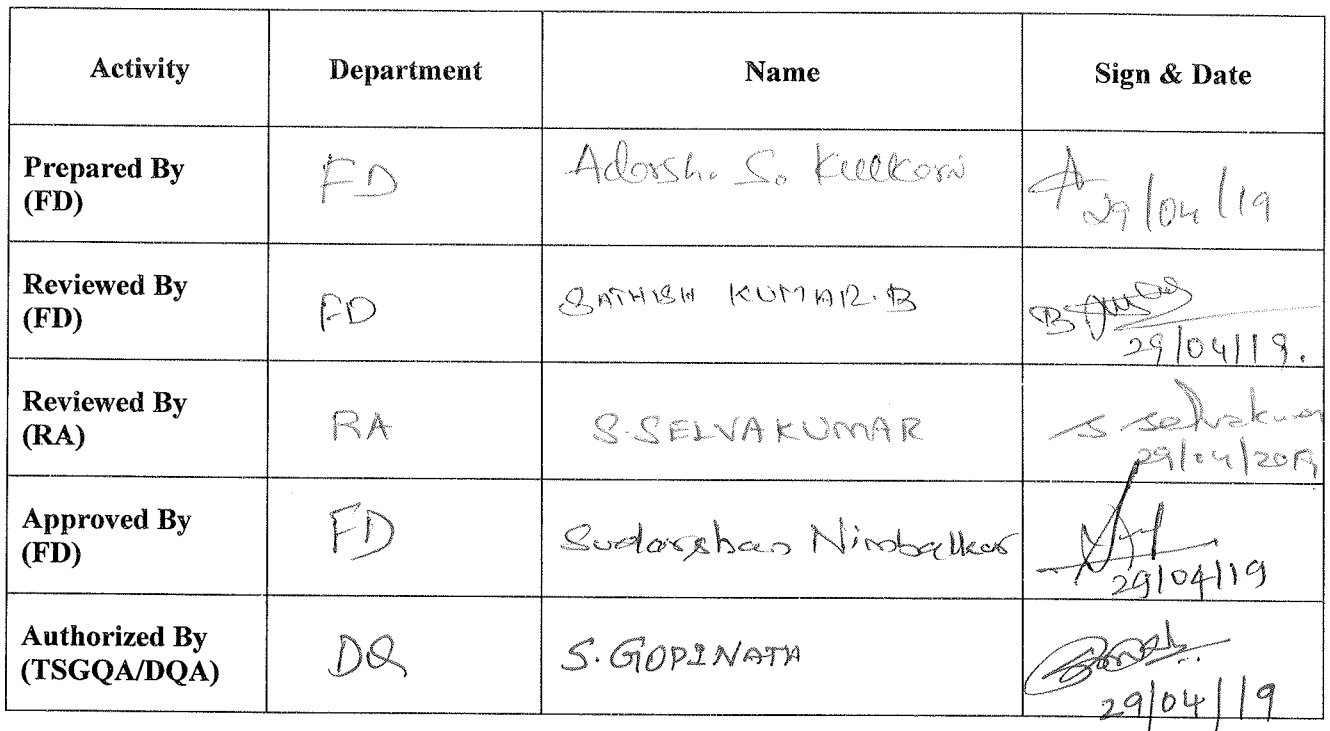 Activity Department Name Sign & Date
Prepared By
(FD) FD Adarsh. S. Kulkarni
29/04/19
Reviewed By
(FD) FD SATHISH KUMAR. B
29/04/19.
Reviewed By
(RA) RA S. SELVAKUMAR S Selvakumar
29/04/2019
Approved By
(FD) FD Sudarshan Nimbalkar
29/04/19
Authorized By
(TSGQA/DQA) DQ S. GOPINATH
29/04/19